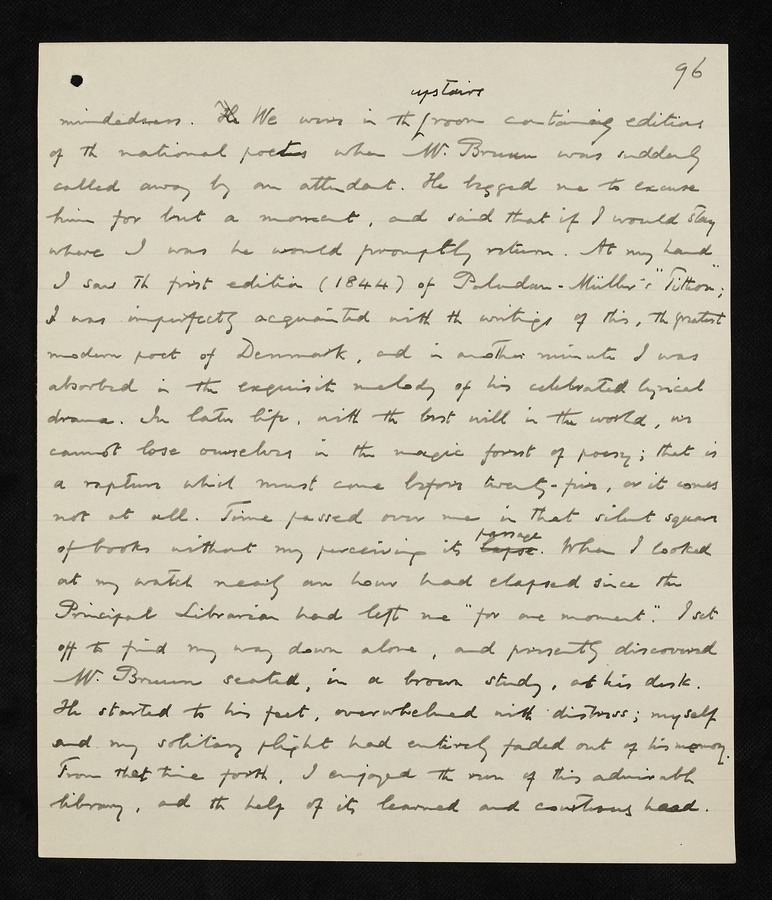 96
upstairs
mindedness. He We were in the room containing editions
of the national poetes when Mr. Bruun was suddenly
called away by an attendant. He begged me to excuse
him for but a moment, and said that if I would stay
where I was he would promptly return. At my hand
I saw the first edition (1844) of Paludan-Müller's "Tithon";
I was imperfectly acquainted with the writings of this, the greatest
modern poet of Denmark, and in another minute I was
absorbed in the exquisite melody of his celebrated lyrical
drama. In later life, with the best will in the world, we
cannot lose ourselves in the magic forest of poesy; that is
a rapture which must come before twenty-five, or it comes
not at all. Time passed over me in that silent square
passage
of books without my perceiving its lapse. When I looked
at my watch nearly an hour had elapsed since the
Principal Librarian had left me "for one moment". I set
off to find my way down alone, and presently discovered
Mr. Bruun seated, in a brown study, at his desk.
He started to his feet, overwhelmed with distress; myself
and my solitary plight had entirely faded out of his memory.
From that time forth, I enjoyed the run of this admirable
library, and the help of its learned and courteous head.